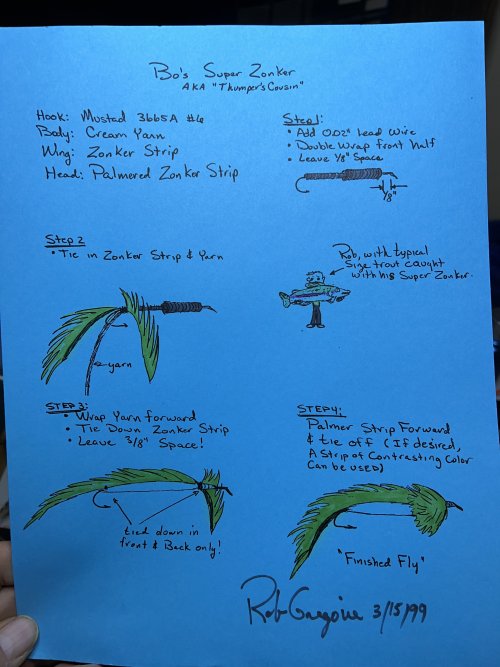 Bo's Super Zonker
AKA "Thumper's Cousin"
Hook: Mustad 3665A #6
Body: Cream Yarn
Wing: Zonker Strip
Head: Palmered Zonker Strip
Step 1:
• Add 0.02" Lead Wire
• Double Wrap front half
• Leave 1/8" Space
1/8"
Step 2
• Tie in Zonker Strip & Yarn
yarn
Rob, with typical
size trout caught
with his Super Zonker.
STEP 3:
• Wrap Yarn forward
• Tie Down Zonker Strip
• Leave 3/8" Space!
tied down in
front & Back only!
STEP 4:
Palmer Strip Forward
& tie off (If desired,
A Strip of Contrasting Color
Can be used)
"Finished Fly"
Rob 3/15/99